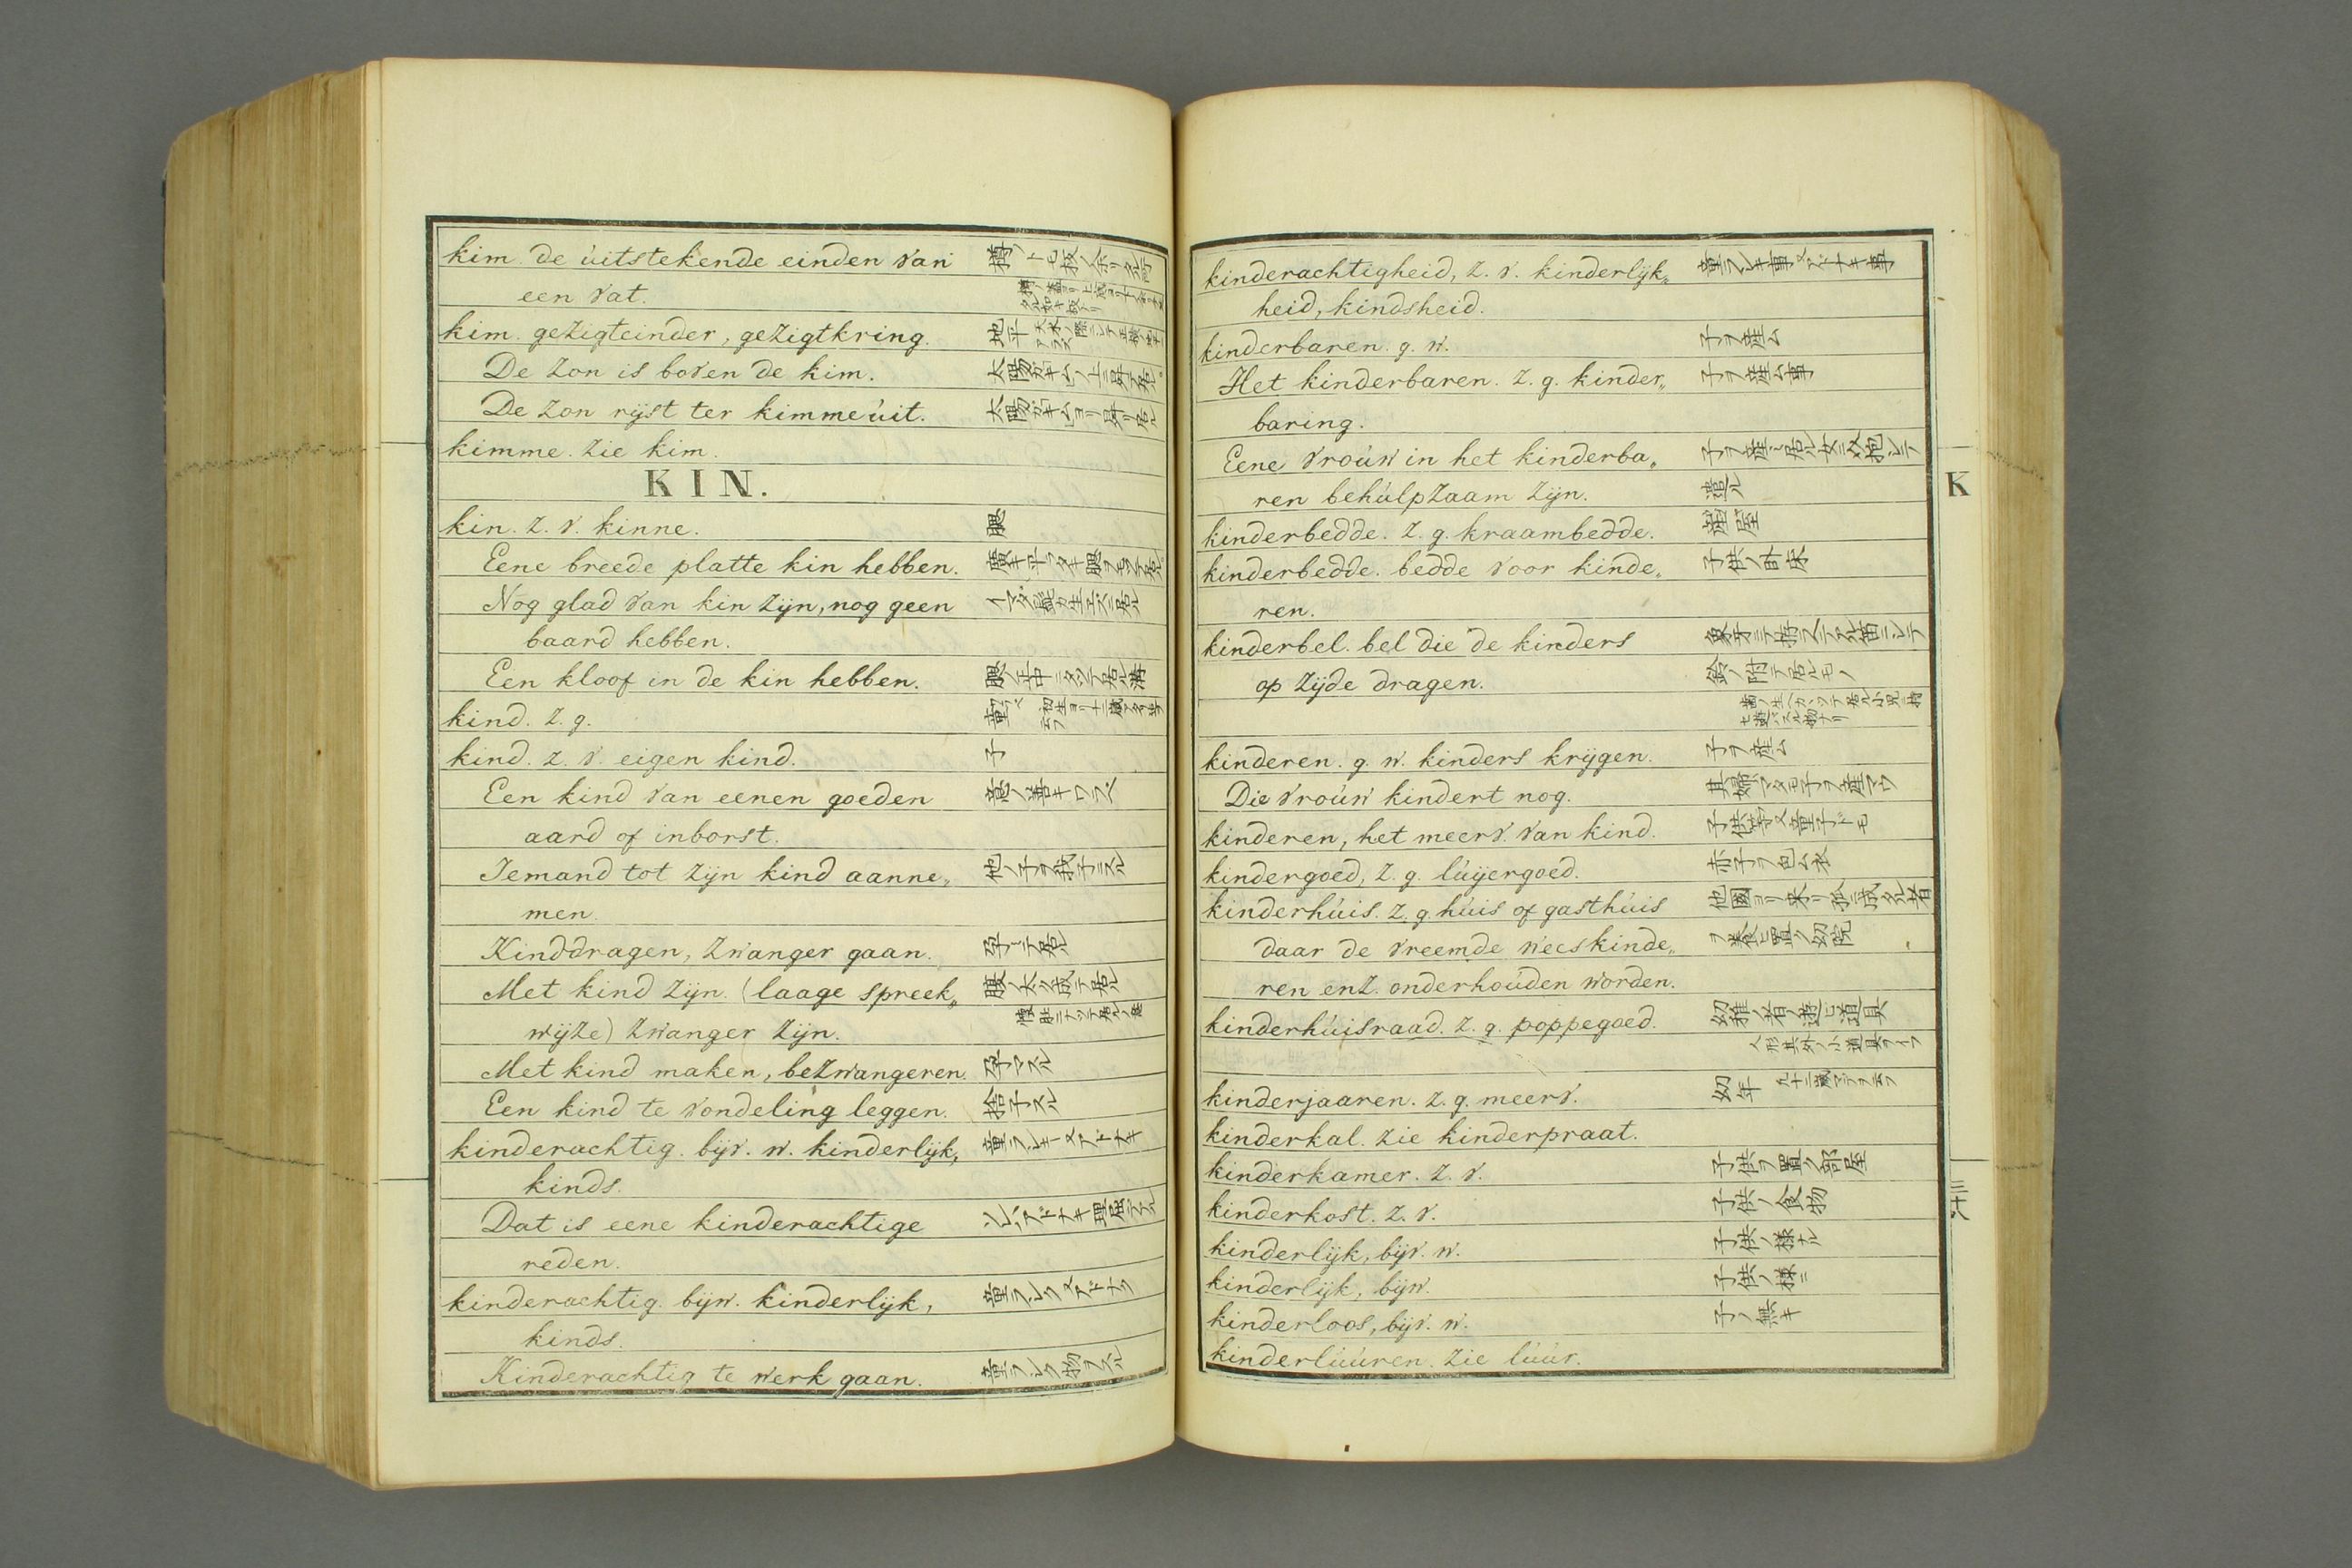 kim. de úitstekende einden van
een vat.
kim. gezigteinder, gezigtkring. 地平
De zon is boven de kim.
De zon rijst ter kimme úit. 太陽ガキムヨリ昇リ居ル
kimme. zie kim.
KIN.
kin. z. v. kinne. 腮
Eene breede platte kin hebben.
Nog glad van kin zijn, nog geen
baard hebben.
Een kloof in de kin hebben.
kind. z. g. 童
kind. z. v. eigen kind. 子
Een kind van eenen goeden 意ノ善キワラベ
aard of inborst.
Iemand tot zijn kind aanne„ 他ノ子ヲ我子ニスル
men.
Kinddragen, zwanger gaan. 孕ンデ居ル
Met kind zijn. (laage spreek„ 腹ノ太ク成テ居ル
wijze) zwanger zijn.
Met kind maken, bezwangeren. 孕マスル
Een kind te vondeling leggen. 捨子スル
kinderachtig. bijv. w. kinderlijk, 童ラシキ 又アドナキ
kinds.
Dat is eene kinderachtige
reden.
kinderachtig. bijw. kinderlijk, 童ラシク 又アドナク
kinds.
Kinderachtig te werk gaan. 童ラシク物ヲスル
kinderachtigheid, z. v. kinderlijk„ 童ラシキ事 又アドナキ事
heid, kindsheid.
kinderbaren. g. w. 子ヲ産ム
Het kinderbaren. z. g. kinder„ 子ヲ産ム事
baring.
Eene vroúw in het kinderba„
ren behúlpzaam zijn.
kinderbedde. z. g. kraambedde. 産屋
kinderbedde. bedde voor kinde„ 子供ノ臥床
ren.
kinderbel. bel die de kinders
op zijde dragen. 鈴ノ附テ居ルモノ
kinderen. g. w. kinders krijgen. 子ヲ産ム
Die vroúw kindert nog.
kinderen, het meerv. van kind.
kindergoed, z. g. lúijergoed. 赤子ヲ包ム衣
kinderhúis. z. g. húis of gasthúis 他國ヨリ来リ孤ニ成タル者
daar de vreemde weeskinde„ ヲ養ヒ置ク幼院
ren enz. onderhoúden worden.
kinderhúisraad. z. g. poppegoed. 幼稚ノ者ノ遊ビ道具
人形其外ノ小道具ヲイフ
kinderjaaren. z. g. meerv. 幼年
kinderkal. zie kinderpraat.
kinderkamer. z. v. 子供ヲ置ク部屋
kinderkost. z. v. 子供ノ食物
kinderlijk, bijv. w. 子供ノ様ナル
kinderlijk, bijw. 子供ノ様ニ
kinderloos, bijv. w. 子ノ無キ
kinderlúúren. zie lúúr.
K